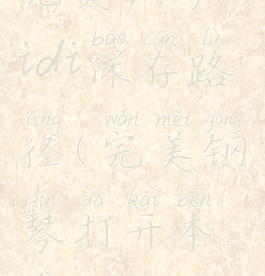 bǎo cún lù
idi保存路
jìng wán měi gāng
径(完美钢
qín dǎ kāi běn
琴打开本